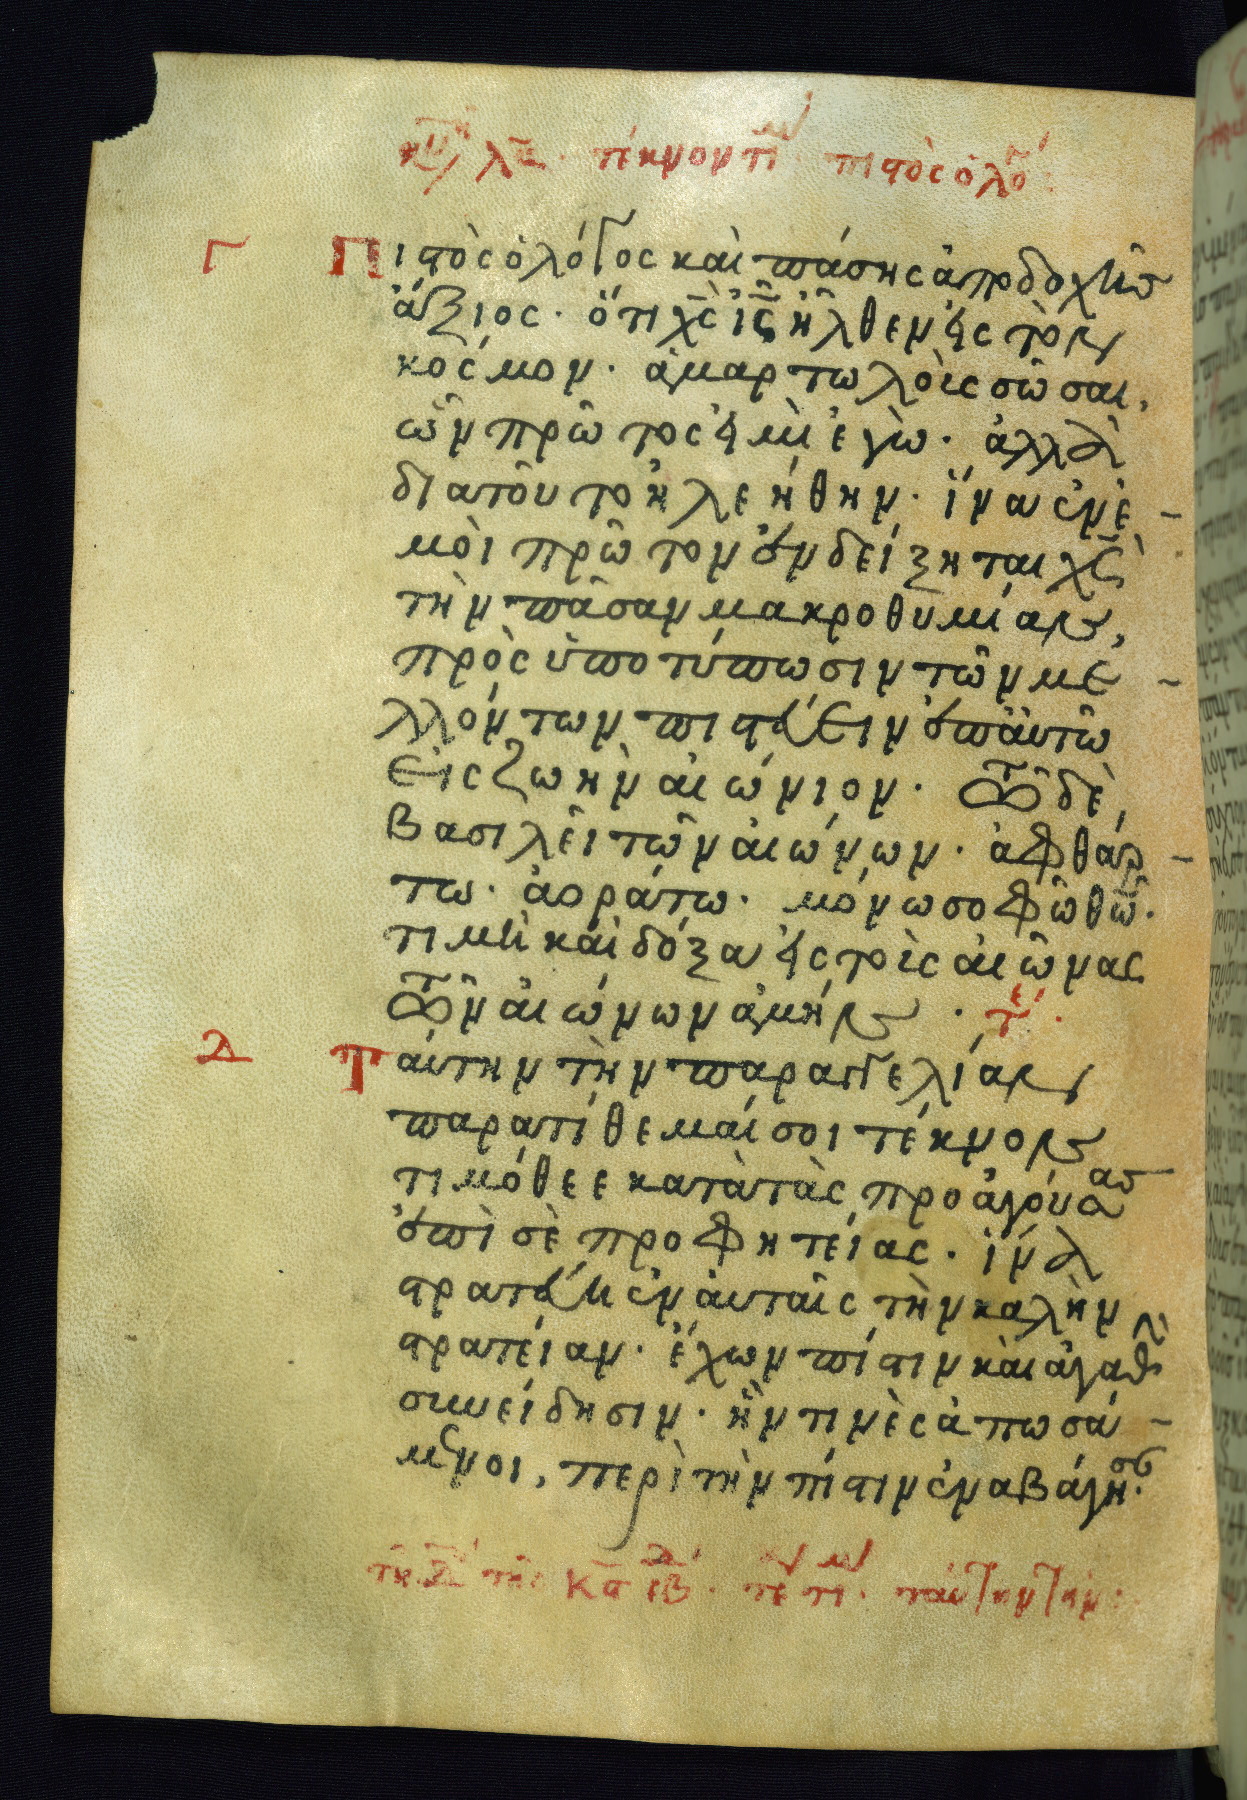 κυ λ τέκνον τι πιστὸς ὁ λό
Γ Πιστὸς ὁ λόγος καὶ πάσης ἀποδοχῆς
ἄξιος· ὅτι χς ις ἦλθεν εἰς τὸν
κόσμον· ἁμαρτωλοὺς σῶσαι,
ὧν πρῶτος εἰμὶ ἐγὼ· ἀλλὰ
διατοῦτο ἠλεήθην· ἵνα ἐν ἐ
μοὶ πρώτον ἐνδείξηται χς
τὴν πᾶσαν μακροθυμίαν,
πρὸς ὑποτύπωσιν τῶν με
λλόντων πιστεύειν ἐπαυτῶ
εἰς ζωὴν αἰώνιον· τῶ δὲ
βασιλεῖ τῶν αἰώνων· ἀφθάρ
τω· ἀοράτω· μόνω σοφῶ θω·
τιμὴ καὶ δόξα εἰς τοὺς αἰῶνας
τῶν αἰώνων ἀμήν· τε·
Δ Ταύτην τὴν παραγγελίαν
παρατίθεμαί σοι τέκνον
τιμόθεε κατὰ τὰς προαγούσας
ἐπὶ σὲ προφητείας· ἵνα
στρατεύη ἐν αὐταῖς τὴν καλὴν
στρατείαν· ἔχων πίστιν καὶ ἀγαθὴν
συνείδησιν· ἥν τινὲς ἀπωσά
μενοι, περὶ τὴν πίστιν ἐναυάγησ·
τῆ Δ τῆς Κ ιβ· τε τι· ταύτην τὴν: